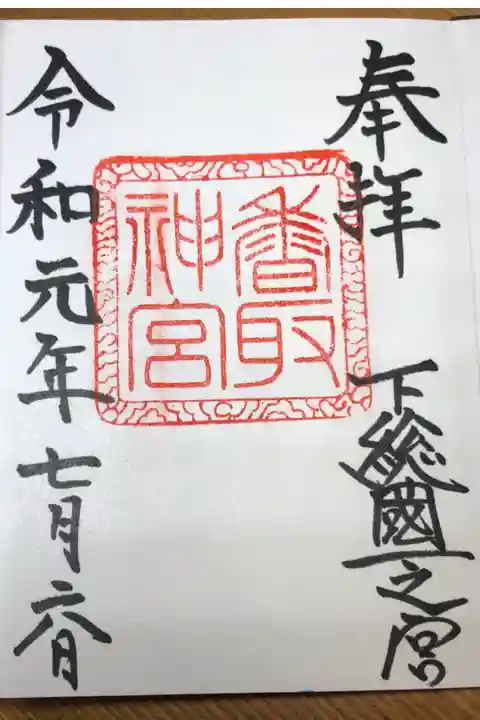 奉拝　下総國一之宮
香取
神宮
令和元年七月六日